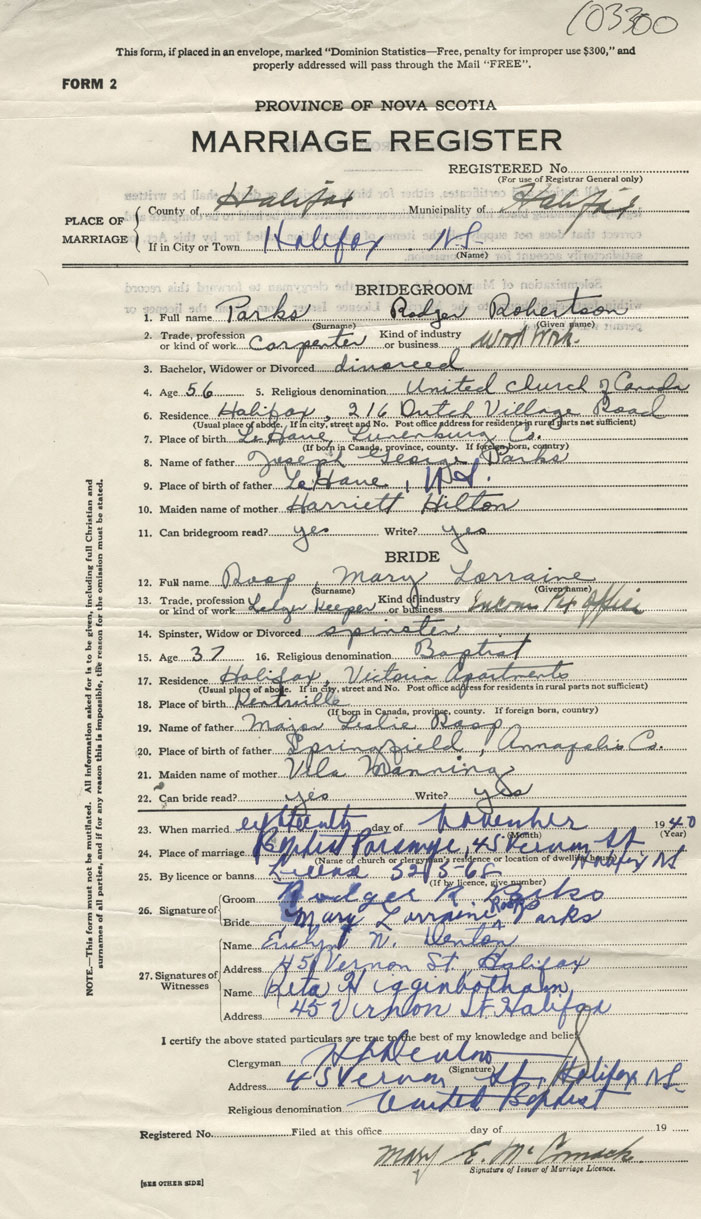 103300
This form, if placed in an envelope, marked "Dominion Statistics—Free, penalty for improper use $300," and
properly addressed will pass through the Mail "FREE".
FORM 2
PROVINCE OF NOVA SCOTIA
MARRIAGE REGISTER
REGISTERED No.
(For use of Registrar General only)
PLACE OF MARRIAGE
County of Halifax Municipality of Halifax
If in City or Town Halifax N.S.
(Name)
BRIDEGROOM
1. Full name Parks Rodger Robertson
(Surname) (Given name)
2. Trade, profession or kind of work Carpenter Kind of industry or business Wood Work.
3. Bachelor, Widower or Divorced divorced
4. Age 56 5. Religious denomination United Church of Canada
6. Residence Halifax, 216 Dutch Village Road
(Usual place of abode. If in city, street and No. Post office address for residents in rural parts not sufficient)
7. Place of birth LaHave, Lunenburg Co.
(If born in Canada, province, county. If foreign born, country)
8. Name of father Joseph George Parks
9. Place of birth of father LaHave, N.S.
10. Maiden name of mother Harriett Hilton
11. Can bridegroom read? yes Write? yes
BRIDE
12. Full name Roop, Mary Lorraine
(Surname) (Given name)
13. Trade, profession or kind of work Ledger Keeper Kind of industry or business Income Tax Office
14. Spinster, Widow or Divorced spinster
15. Age 37 16. Religious denomination Baptist
17. Residence Halifax, Victoria Apartments
(Usual place of abode. If in city, street and No. Post office address for residents in rural parts not sufficient)
18. Place of birth Kentville
(If born in Canada, province, county. If foreign born, country)
19. Name of father Major Leslie Roop
20. Place of birth of father Springfield, Annapolis Co.
21. Maiden name of mother Vila Manning
22. Can bride read? yes Write? yes
23. When married eighteenth day of November 1940
(Month) (Year)
24. Place of marriage Baptist Parsonage, 45 Vernon St Halifax NS
(Name of church or clergyman's residence or location of dwelling house)
25. By licence or banns License 5215-68
(If by licence, give number)
26. Signature of
Groom Rodger R. Parks
Bride Mary Lorraine Roop Parks
27. Signatures of Witnesses
Name Evelyn N. Denton
Address 45 Vernon St. Halifax
Name Rita Higginbotham
Address 45 Vernon St Halifax
I certify the above stated particulars are true to the best of my knowledge and belief
Clergyman Denton
(Signature)
Address 45 Vernon St., Halifax N.S.
Religious denomination United Baptist
Registered No. Filed at this office day of 19
Mary E. McCormack
Signature of Issuer of Marriage Licence.
[SEE OTHER SIDE]
NOTE.—This form must not be mutilated. All information asked for is to be given, including full Christian and
surnames of all parties, and if for any reason this is impossible, the reason for the omission must be stated.